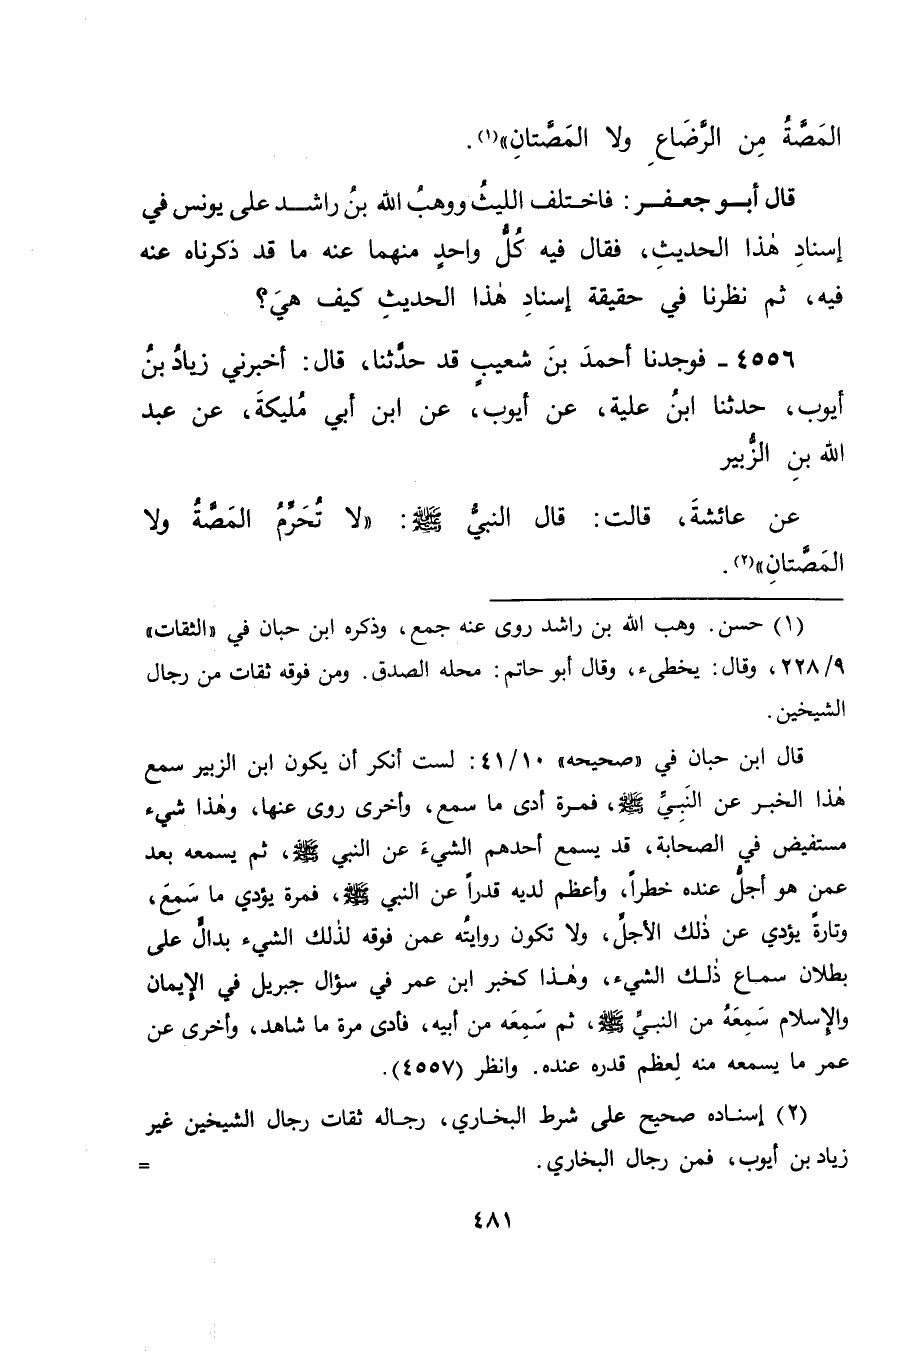 المَصَّةُ مِن الرَّضَاعِ ولا المَصَّتانِ»(١).
قال أبو جعفر: فاختلف الليثُ ووهبُ الله بنُ راشد على يونس في
إسنادِ هٰذا الحديثِ، فقال فيه كُلُّ واحدٍ منهما عنه ما قد ذكرناه عنه
فيه، ثم نظرنا في حقيقة إسنادِ هٰذا الحديثِ كيف هيَ؟
٤٥٥٦ ـ فوجدنا أحمدَ بنَ شعيبٍ قد حدَّثنا، قال: أخبرني زيادُ بنُ
أيوب، حدثنا ابنُ علية، عن أيوب، عن ابن أبي مُليكةَ، عن عبد
الله بنِ الزُّبير
عن عائشةَ، قالت: قال النبيُّ ﷺ: «لا تُحَرِّمُ المَصَّةُ ولا
المَصَّتانِ»(٢).
(١) حسن. وهب الله بن راشد روى عنه جمع، وذكره ابن حبان في «الثقات»
٢٢٨/٩، وقال: يخطىء، وقال أبو حاتم: محله الصدق. ومن فوقه ثقات من رجال
الشيخين.
قال ابن حبان في «صحيحه» ٤١/١٠: لست أنكر أن يكون ابن الزبير سمع
هٰذا الخبر عن النَبِيِّ ﷺ، فمرة أدى ما سمع، وأخرى روى عنها، وهٰذا شيء
مستفيض في الصحابة، قد يسمع أحدهم الشيءَ عن النبي ﷺ، ثم يسمعه بعد
عمن هو أجلُّ عنده خطراً، وأعظم لديه قدراً عن النبي ﷺ، فمرة يؤدي ما سَمِعَ،
وتارةً يؤدي عن ذٰلك الأجلِّ، ولا تكون روايتُه عمن فوقه لذٰلك الشيء بدالٍّ على
بطلان سماع ذٰلك الشيء، وهٰذا كخبر ابن عمر في سؤال جبريل في الإيمان
والإسلام سَمِعَهُ من النبيِّ ﷺ، ثم سَمِعَه من أبيه، فأدى مرة ما شاهد، وأخرى عن
عمر ما يسمعه منه لِعظم قدره عنده. وانظر (٤٥٥٧).
(٢) إسناده صحيح على شرط البخاري، رجاله ثقات رجال الشيخين غير
زياد بن أيوب، فمن رجال البخاري. =
٤٨١